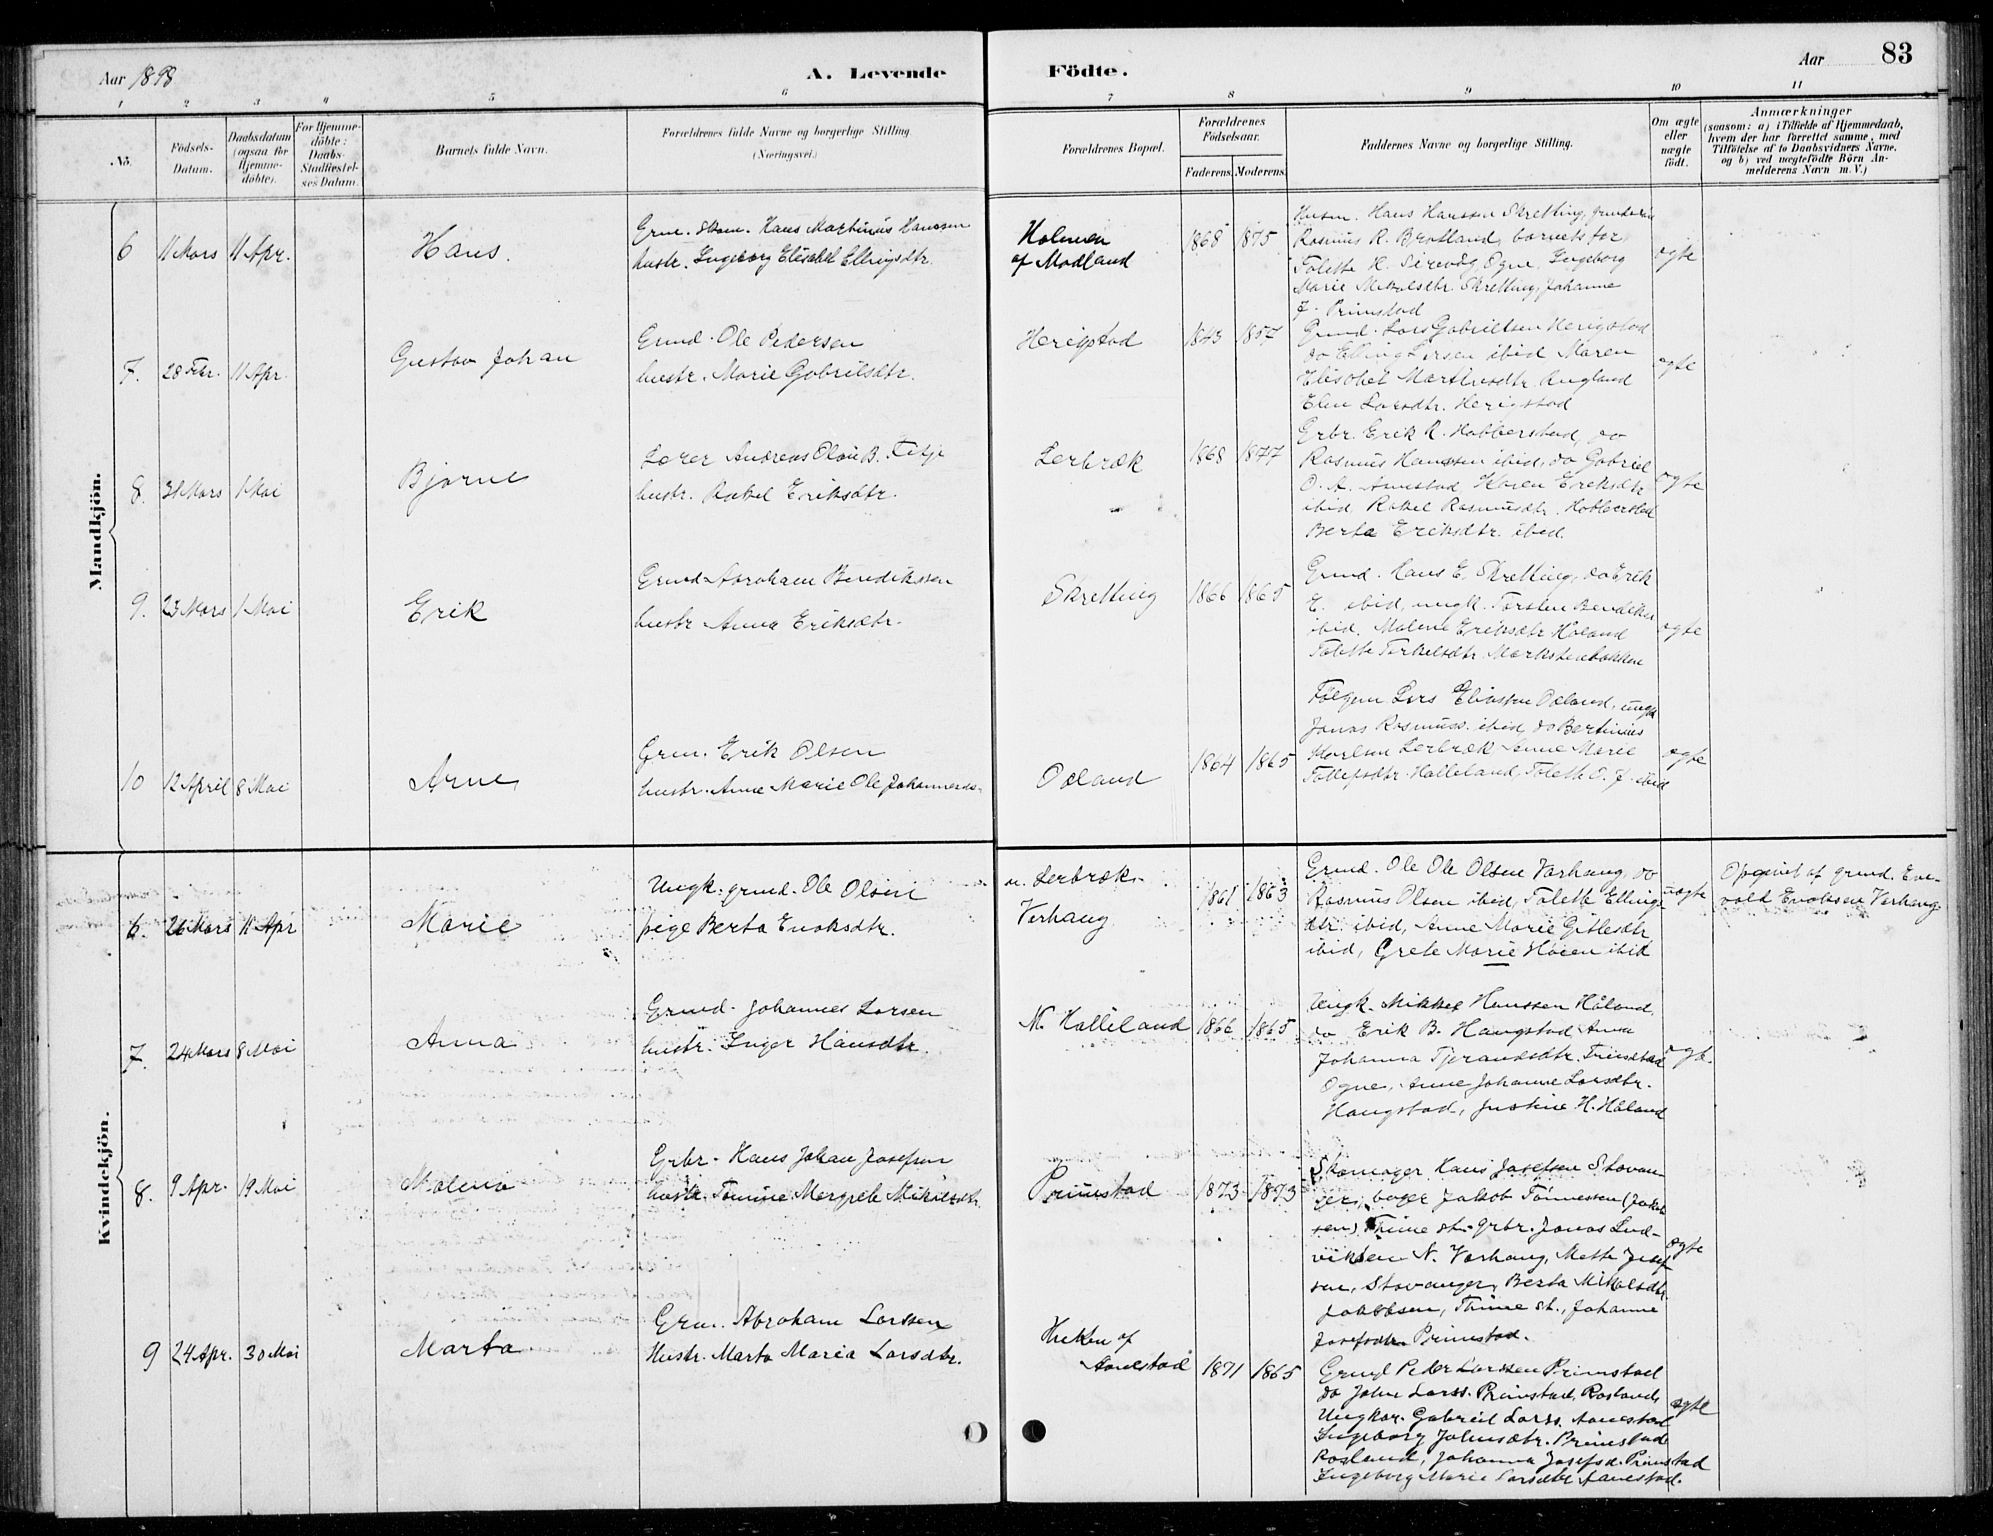 Aar 1898
A. Levende
Födte.
Aar
83
1 2 3 4 5 6 7 8 9 10 11
No.
Födsels-
Datum.
Daabsdatum
(ogsaa for
Hjemme-
döbte).
For Hjemme-
döbte:
Daabs-
Stadfæstel-
ses Datum.
Barnets fulde Navn.
Forældrenes fulde Navne og borgerlige Stilling.
(Næringsvei.)
Forældrenes Bopæl.
Forældrenes
Födselsaar.
Faderens. Moderens.
Faddernes Navne og borgerlige Stilling.
Om ægte
eller
uægte
födt.
Anmærkninger
(saasom: a) i Tilfælde af Hjemmedaab,
hvem der har forrettet samme, med
Tilföielse af to Daabsvidners Navne,
og b) ved uægtefödte Börn An-
melderens Navn m. V.)
Mandkjön.
6 11 Mars 11 Apr.
Hans.
Hans Martinius Hanssen
hustr. Ingeborg Elisabet Ellingsdtr.
Holmen
af Modland
1868 1875
Husm. Hans Hanssen Skretting,
Rasmus R. Brotland, barnets far,
Tolette H. Sirevåg Ogne, Ingeborg
Marie Mikalsdtr. Skretting, Johanne
J. Primstad
ægte
7. 28 Febr. 11 Apr.
Gustav Johan
Grmd. Ole Pedersen
hustr. Marie Gabrilsdtr.
Herigstad
1843 1857
Grmd. Lars Gabrielsen Herigstad
do Elling Larsen ibid Maren
Elisabet
Elen Larsdtr. Herigstad
ægte
8. 31 Mars 1 Mai
Bjarne
Lærer Andreas Olaus B. Tilje
hustr. Rakel Eriksdtr.
Lerbræk
1868 1877
Grbr. Erik R. Hobberstad, do
Rasmus Hanssen ibid, do Gabriel
O. A. Aanestad Karen Eriksdtr
ibid Rakel Rasmusdtr. Hobberstad
Berta Eriksdtr. ibid.
ægte
9. 23 Mars 1 Mai
Erik
Grmd. Abraham Bendikssen
hustr Anna Eriksdtr.
Skretting
1866 1865
Grmd. Hans E. Skretting, do Erik
E. ibid, ungk. Torsten Bendiks
ibid. Malene Eriksdtr Håland
Tolette Terkelsdtr. Markstenbakken
ægte
10 12 April 8 Mai
Arne
Grm. Erik Olsen
hustr. Anne Marie Ole Johannesds.
Odland
1864 1865
Lars Eliassen Odland, ungk
Jonas Rasmuss. ibid, do Bertinius
Karlsen Lerbræk Anne Marie
Tollefsdtr. Halleland, Tolette O. J. ibid
ægte
Kvindekjön.
6. 26 Mars 11 Apr
Marie
Ungk. grmd. Ole Olsen
pige Berta Enoksdtr.
n. Lerbræk.
Varhaug
1861 1863
Grmd. Ole Ole Olsen Varhaug, do
Rasmus Olsen ibid, Tolette Ellings
dtr. ibid, Anne Marie Gitlesdtr
ibid, Grete Marie Høien ibid
uægte
Opgivet af grmd. Ene-
vald Enoksen Varhaug
7. 24 Mars 8 Mai
Anna
Grmd. Johannes Larsen
hustr. Inger Hansdtr.
N. Halleland
1866 1865
Ungk. Mikkel Hanssen Håland,
do Erik B. Haugstad, Anna
Johanna Tjerandsdtr.
Ogne, Anne Johanne Larsdtr.
Haugstad, Justine H. Håland
ægte.
8. 9 Apr. 19 Mai
Malena
Grbr. Hans Johan Josefsen
hustr. Tomine Margrete Mikalsdtr.
Primstad
1873 1873
Skomager Hans Josefsen Stavan
ger, bager Jakob Tønnessen (Jakob
sen) Thime st. grbr. Jonas Lud-
viksen N. Varhaug, Mette Josef
sen, Stavanger, Berta Mikalsdtr.
Jakobsen, Thime st., Johanne
Josefsdtr Primstad.
ægte
9 24 Apr. 30 Mai
Marta
Grm. Abraham Larssen
Hustr. Marta Maria Larsdtr.
af
Aanestad
1871 1865
Grmd Peder Larssen Primstad
do John Larss. Primstad, Rosland,
Ungkar. Gabriel Larss. Aanestad
Ingeborg Johnsdtr. Primstad
Rosland, Johanna Josefsd. Primstad
Ingeborg Marie Larsdtr Aanestad.
ægte